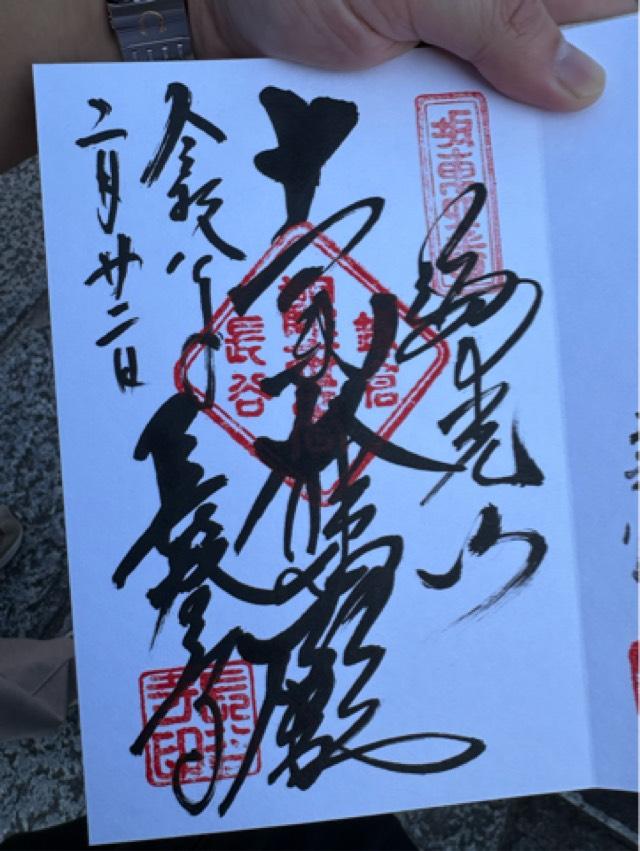 坂東四番
海光山
十一面大悲殿
鎌倉
長谷
令和八年
二月廿二日
長谷寺
長谷寺印